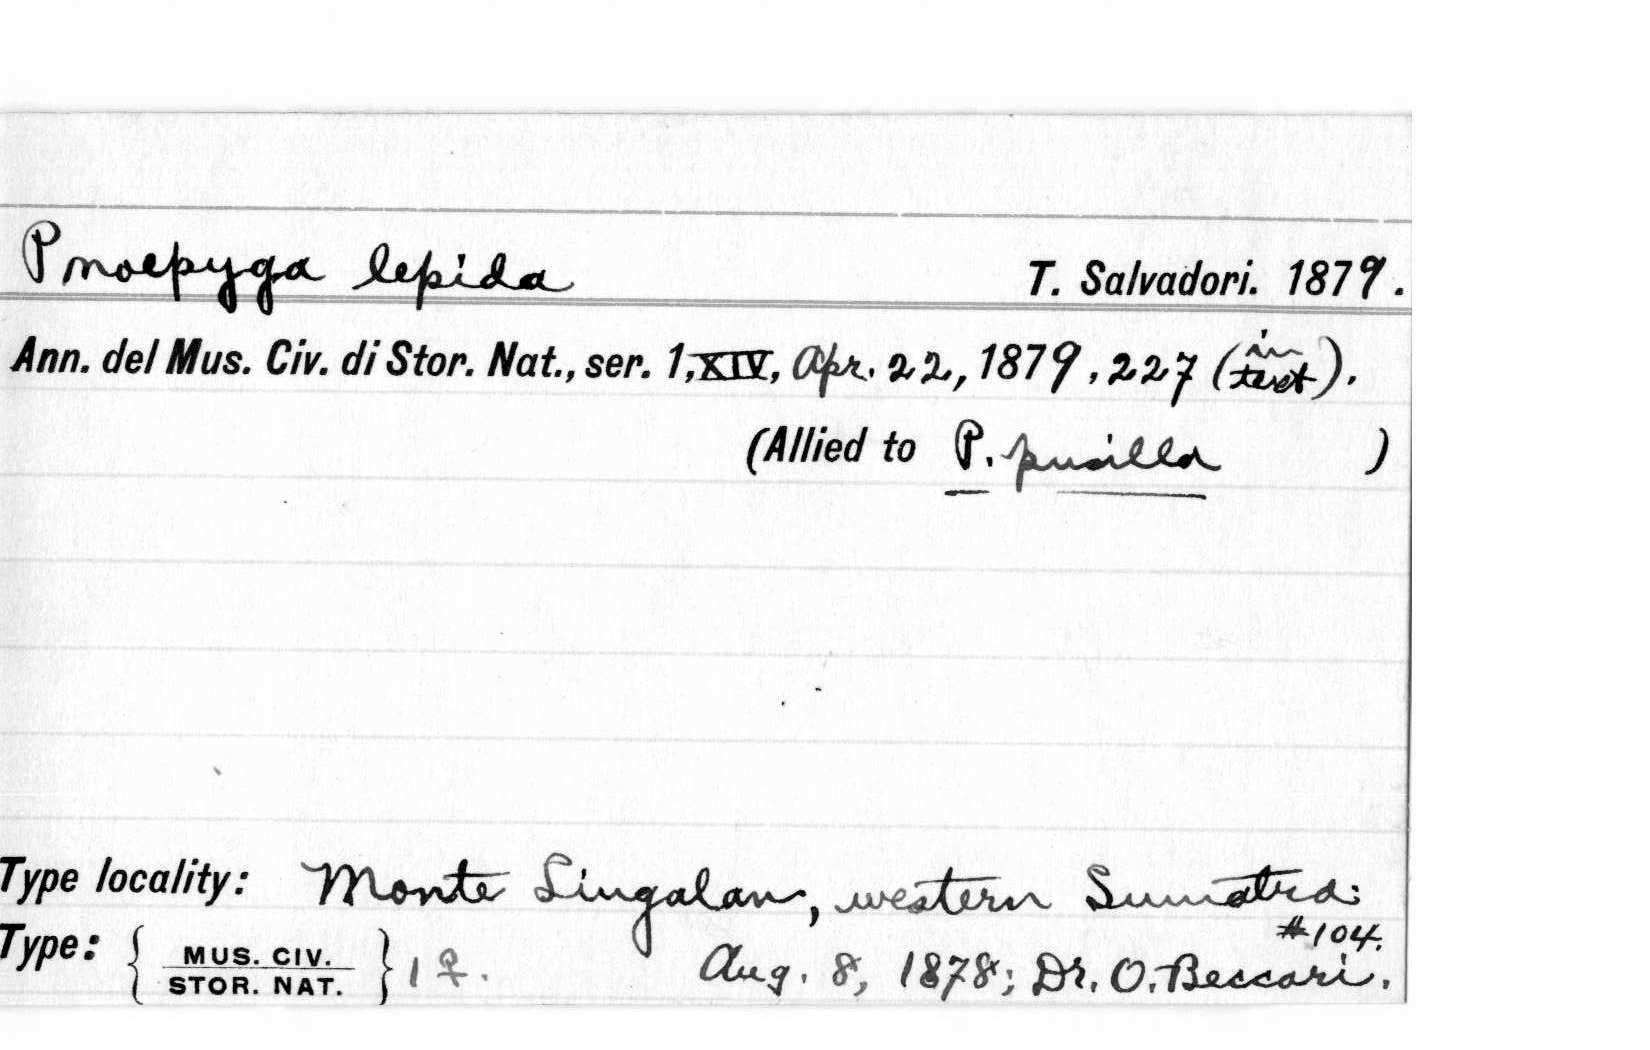 Pnoepyga lepida T. Salvadori. 1879.
Ann. del Mus. Civ. di Stor. Nat., ser. 1, XIV, Apr. 22, 1879, 227 (in text).
(Allied to P. pusilla )
Type locality: Monte Singalan, western Sumatra:
#104.
Type: { MUS. CIV. STOR. NAT. } 1 ♀. Aug. 8, 1878; Dr. O. Beccari.